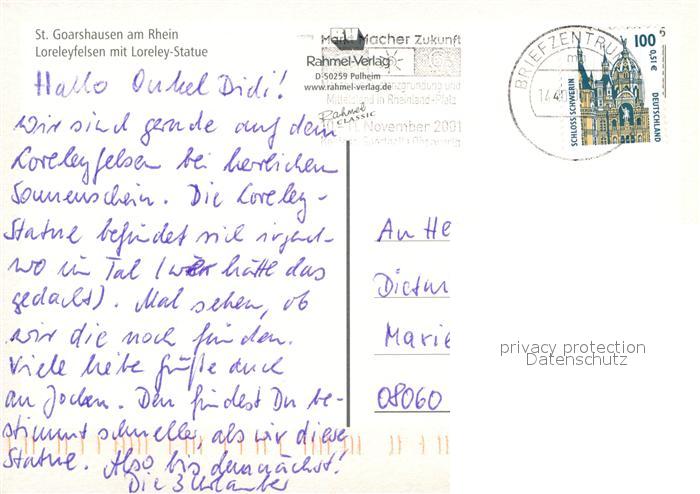 St. Goarshausen am Rhein
Loreleyfelsen mit Loreley-Statue
Hallo Onkel Didi!
wir sind gerade auf dem
Loreleyfelsen bei herrlichem
Sonnenschein. Die Loreley-
Statue befindet sich irgend-
wo im Tal (wer hätte das
gedacht). Mal sehen, ob
wir die noch finden.
Viele liebe Grüße auch
an Jochen. Den findest Du be-
stimmt schneller, als wir diese
Statue. Also bis demnächst!
Die 3 Urlauber
Markt Macher Zukunft
Rahmel-Verlag
D-50259 Pulheim
www.rahmel-verlag.de
Mittelstand in Rheinland-Pfalz
Rahmel
CLASSIC
November 2001
BRIEFZENTRU
100
0,51€
SCHLOSS SCHWERIN
DEUTSCHLAND
An He
Dietm
Marie
08060
privacy protection
Datenschutz